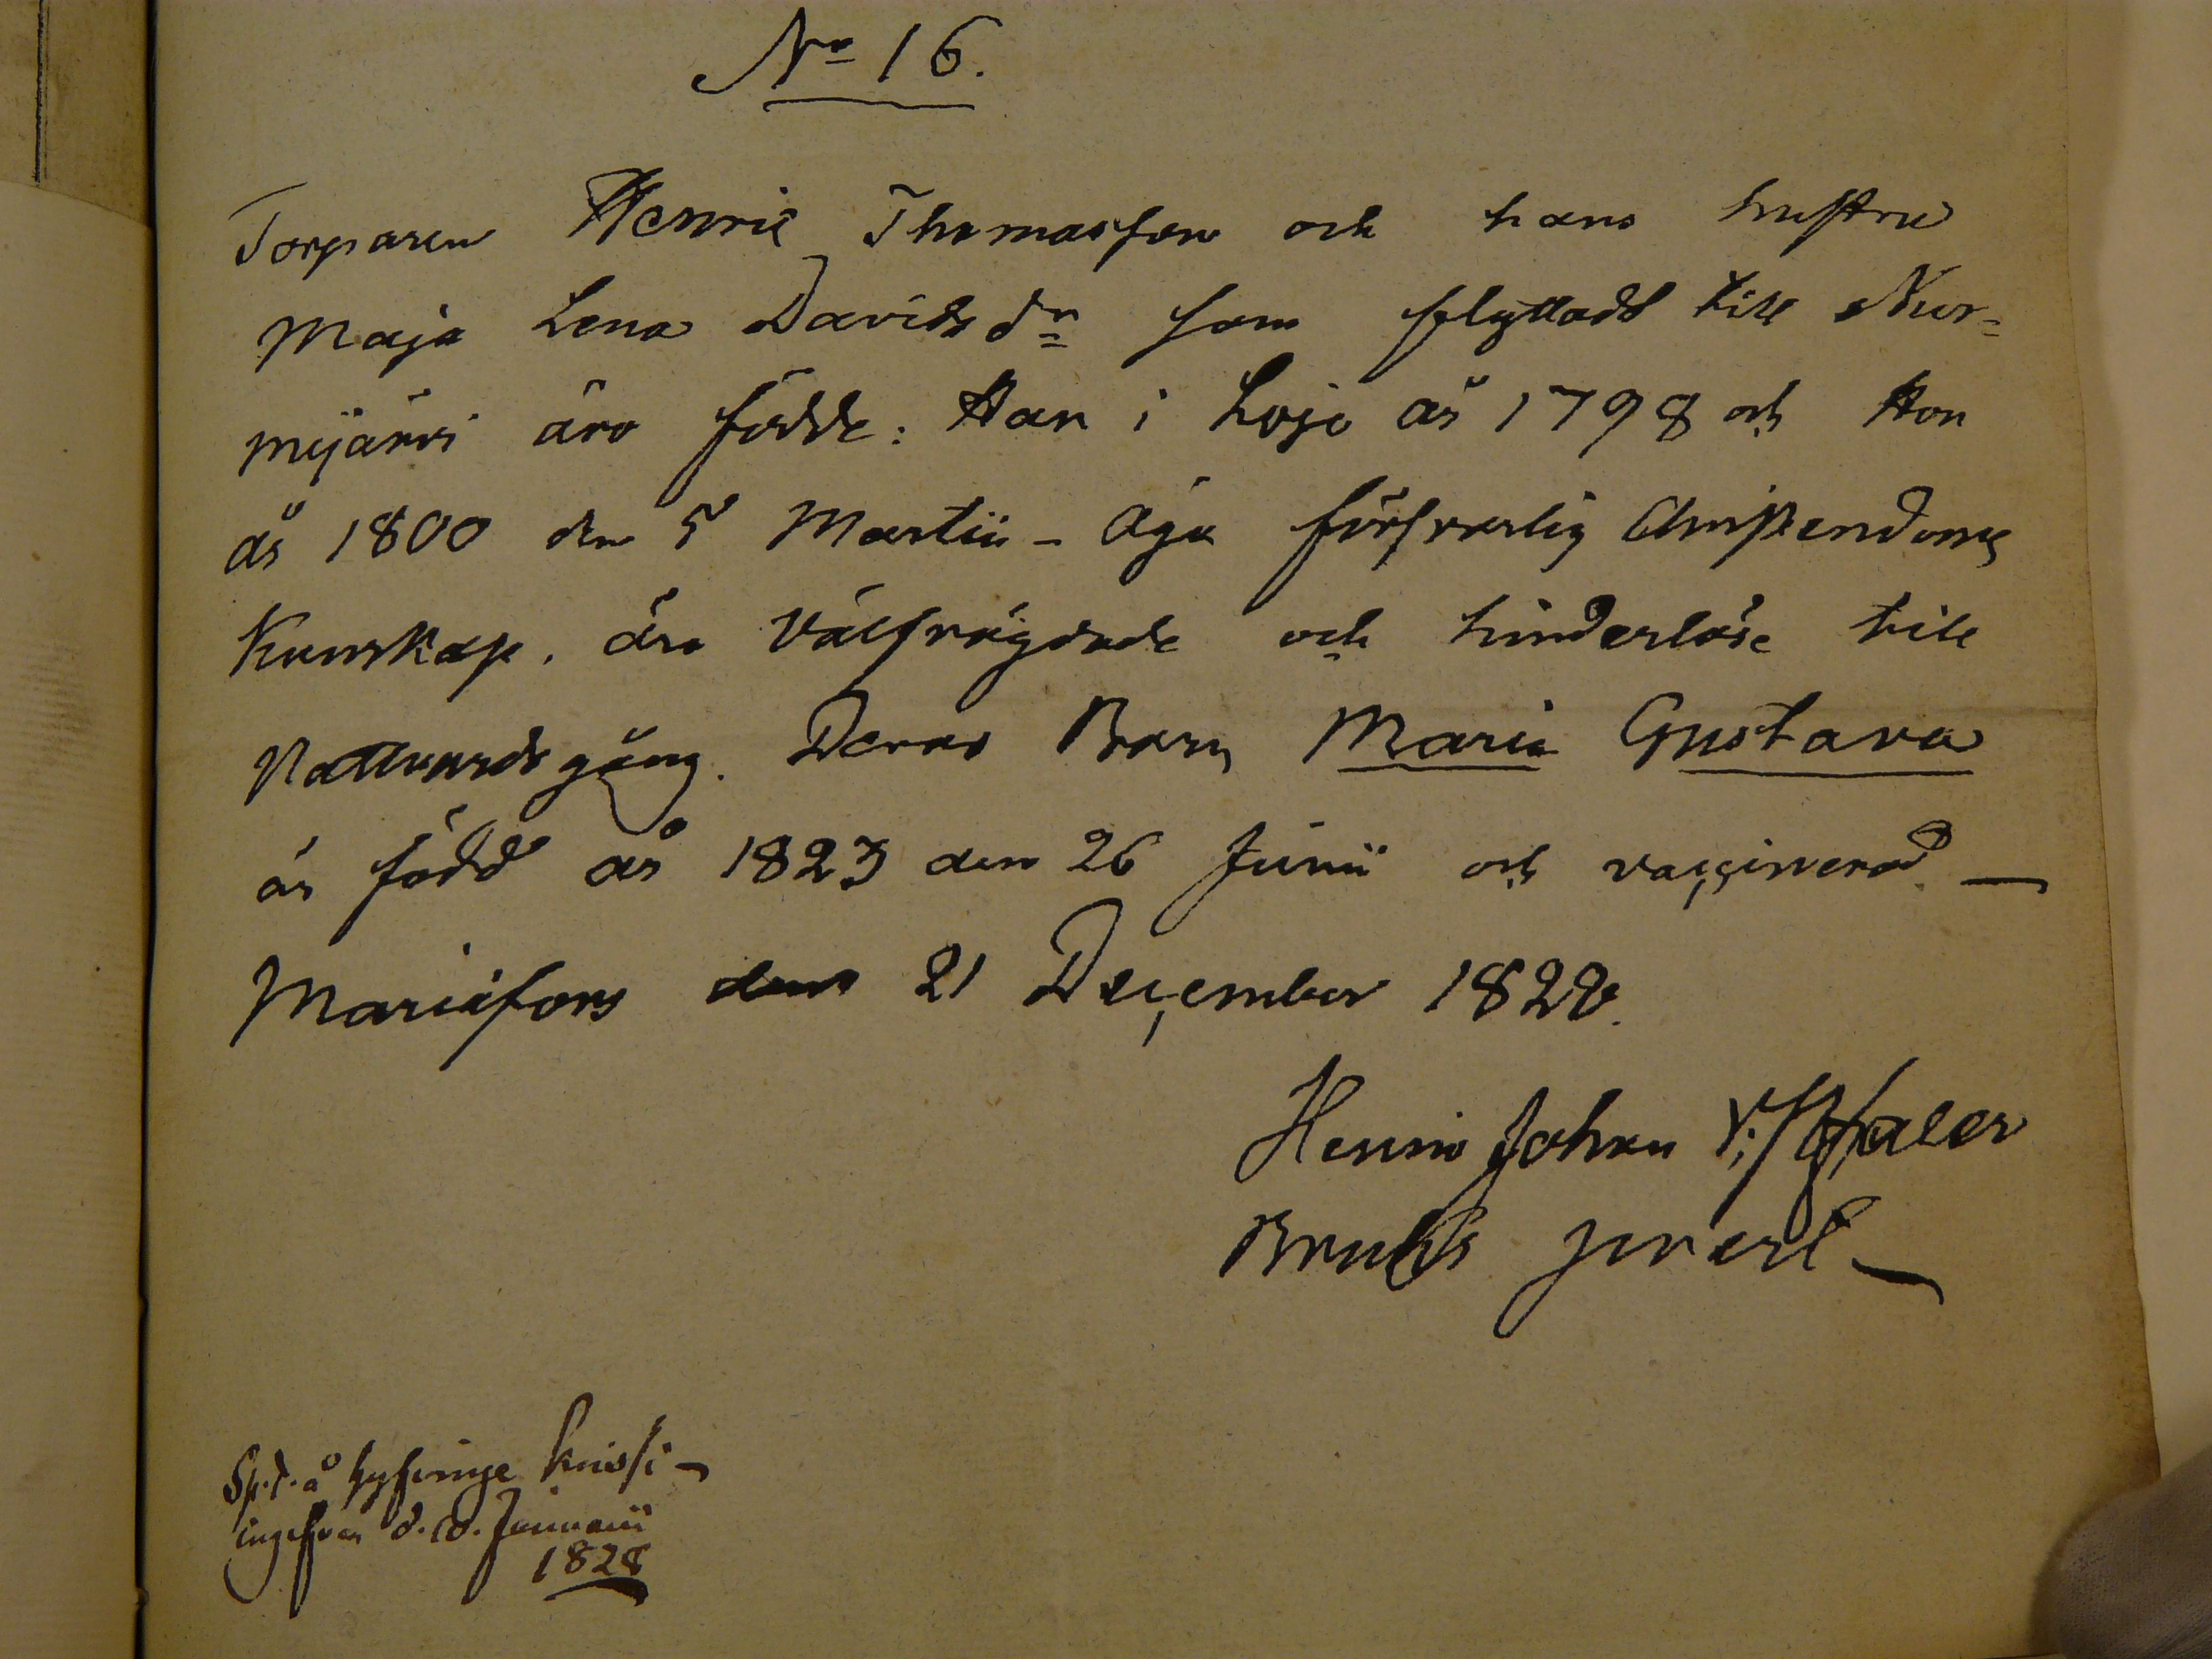 No 16.
Torparen Henric Thomasson och hans hustru
Maja Lena Davidsdr som flyttadt till Nur=
mijärvi äro födde: Han i Lojo år 1798 och Hon
år 1800 den 5 Martii - äga försvarlig Christendoms
Kunskap, äro välfrägdade och hinderlöse till
Nattvardsgång. Deras Barn Maria Gustava
är född år 1823 den 26 Junii och vaccinerad —
Mariæfors den 21 December 1828.
Henric Johan
Bruks
å Hyfvinge
d. Januarii
1828